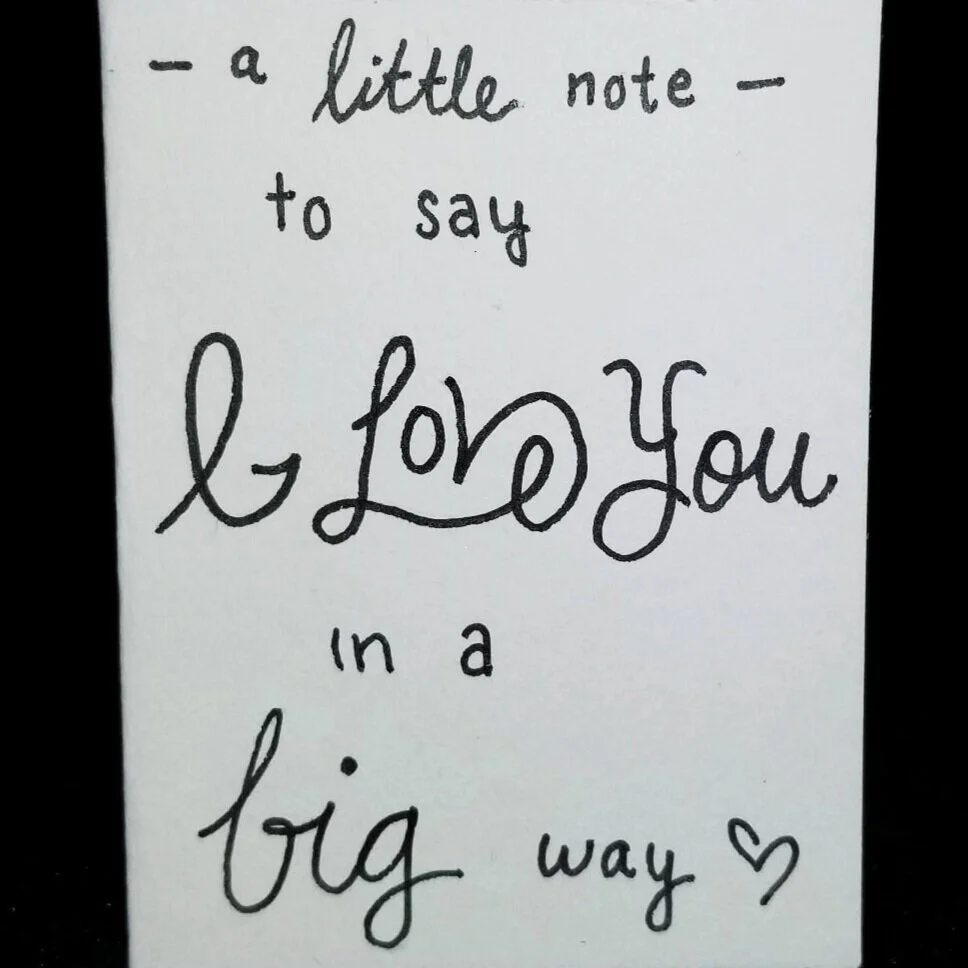 - a little note -
to say
I Love You
in a
big way ♡